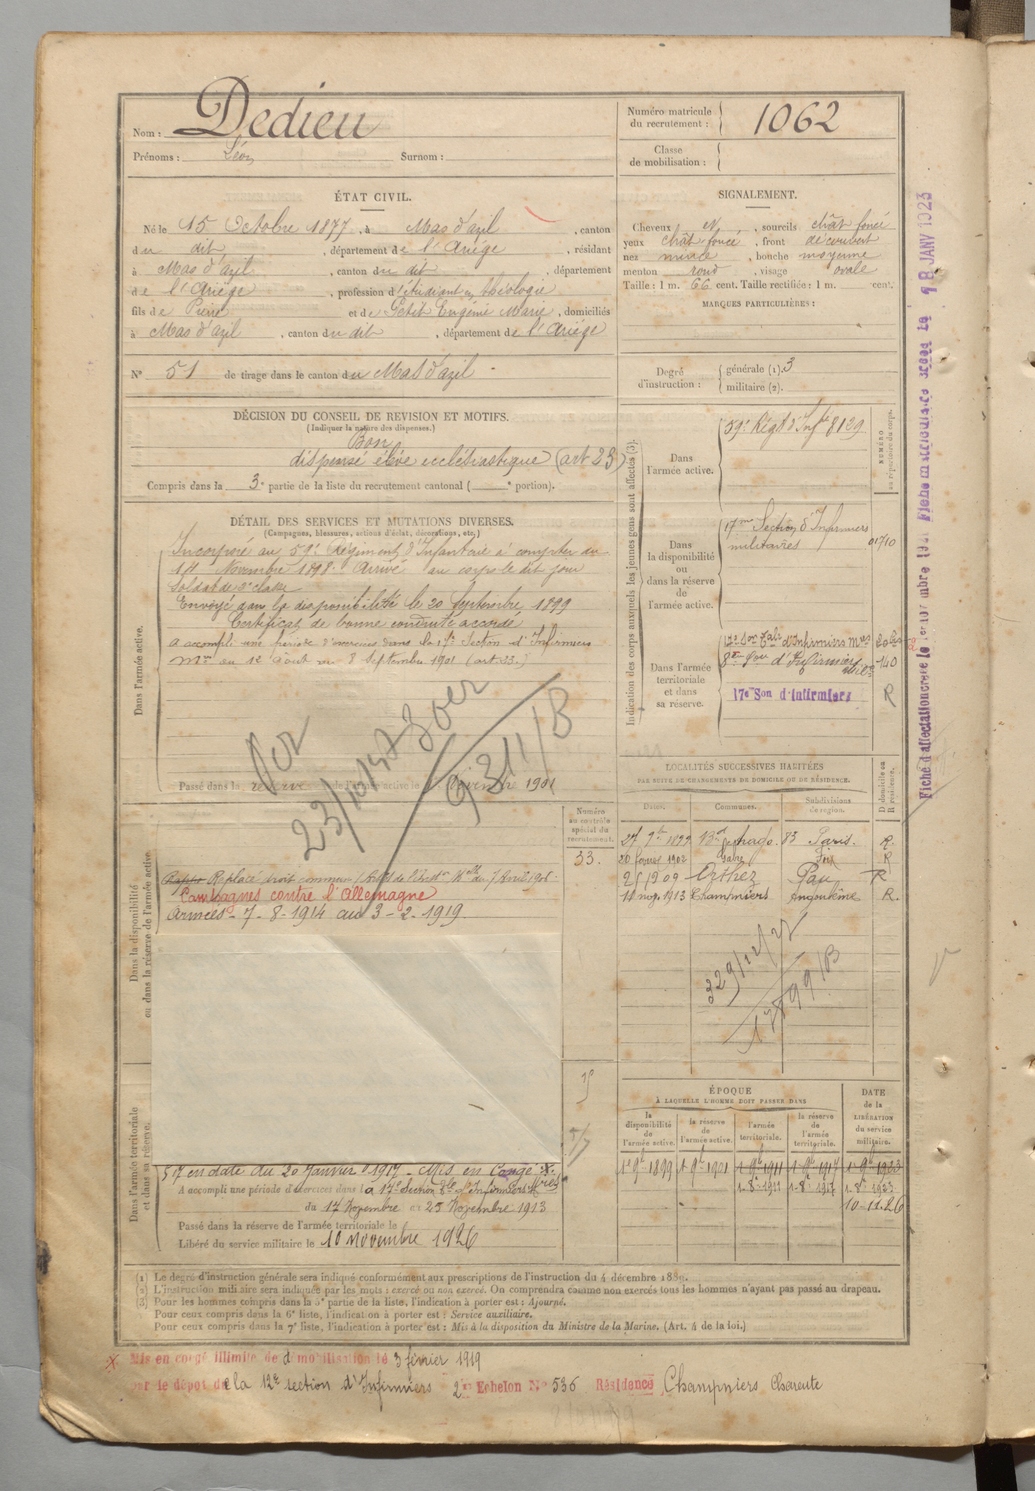 Nom : Dedieu
Prénoms : Léon Surnom :
Numéro matricule du recrutement : 1062
Classe de mobilisation :
ÉTAT CIVIL.
Né le 15 Octobre 1877, à Mas d'azil, canton
du dit, département de l'Ariége, résidant
à Mas d'azil, canton du dit, département
de l'Ariége, profession d'étudiant en théologie
fils de Pierre et de Petit Eugénie Marie, domiciliés
à Mas d'azil, canton du dit, département de l'Ariége
N° 51 de tirage dans le canton du Mas d'azil
SIGNALEMENT.
Cheveux N, sourcils chât foncé
yeux chât foncé, front découvert
nez, bouche moyenne
menton rond, visage ovale
Taille : 1 m. 66 cent. Taille rectifiée : 1 m. cent.
MARQUES PARTICULIÈRES :
Degré d'instruction : générale (1). 3
militaire (2).
DÉCISION DU CONSEIL DE REVISION ET MOTIFS.
(Indiquer la nature des dispenses.)
Bon
dispensé élève ecclésiastique (art 23)
Compris dans la 3e partie de la liste du recrutement cantonal ( e portion).
DÉTAIL DES SERVICES ET MUTATIONS DIVERSES.
(Campagnes, blessures, actions d'éclat, décorations, etc.)
Dans l'armée active.
Incorporé au 59e Régiment d'Infanterie à compter du
14 Novembre 1898. Arrivé au corps le dit jour
Soldat de 2e classe
Envoyé dans la disponibilité le 20 Septembre 1899
Certificat de bonne conduite accordé
A accompli une période d'exercices dans la 17e Section d'Infirmiers
Mres du 12 Août au 8 Septembre 1901 (art. 23.)
Passé dans la réserve de l'armée active le 1 Novembre 1901
Indication des corps auxquels les jeunes gens sont affectés (3).
NUMÉRO au répertoire du corps.
Dans l'armée active.
59e Régt d'Infie 8129
Dans la disponibilité ou dans la réserve de l'armée active.
17me Section d'Infirmiers
militaires 01710
Dans l'armée territoriale et dans sa réserve.
17e Son d'infirmiers R
Fiche d'affectation créée le
Fiche matriculaire créée le 18 JANV 1923
LOCALITÉS SUCCESSIVES HABITÉES
PAR SUITE DE CHANGEMENTS DE DOMICILE OU DE RÉSIDENCE.
Dates. Communes. Subdivisions de région. D domicile ou R résidence.
27 9bre 1899 Bd Arago. 83 Paris. R.
20 février 1902 Foix R
25 1909 Orthez Pau R
11 nov. 1913 Champniers Angoulême R.
Numéro au contrôle spécial du recrutement.
33.
Dans la disponibilité ou dans la réserve de l'armée active
Campagnes contre l'Allemagne
Armées - 7 - 8 - 1914 au 3 - 2 - 1919.
Dans l'armée territoriale et dans sa réserve.
§ 17 en date du 20 Janvier 1917 - Mis en Congé
A accompli une période d'exercices dans la 17e Section d'Infirmiers
du 17 Novembre au 23 Novembre 1913
Passé dans la réserve de l'armée territoriale le
Libéré du service militaire le 10 novembre 1926
ÉPOQUE
À LAQUELLE L'HOMME DOIT PASSER DANS
DATE de la LIBÉRATION du service militaire.
la disponibilité de l'armée active.
la réserve de l'armée active.
l'armée territoriale.
la réserve de l'armée territoriale.
1er 9bre 1899 1 9bre 1901 1 9bre 1911 1 9bre 1917 1 9bre 1923
10-11.26
(1) Le degré d'instruction générale sera indiqué conformément aux prescriptions de l'instruction du 4 décembre 1889.
(2) L'instruction militaire sera indiquée par les mots : exercé ou non exercé. On comprendra comme non exercés tous les hommes n'ayant pas passé au drapeau.
(3) Pour les hommes compris dans la 5e partie de la liste, l'indication à porter est : Ajourné.
Pour ceux compris dans la 6e liste, l'indication à porter est : Service auxiliaire.
Pour ceux compris dans la 7e liste, l'indication à porter est : Mis à la disposition du Ministre de la Marine. (Art. 4 de la loi.)
Mis en congé illimité de démobilisation le 3 février 1919
par le dépot de la 12e section d'Infirmiers 2e Echelon N° 536 Résidence Champniers Charente